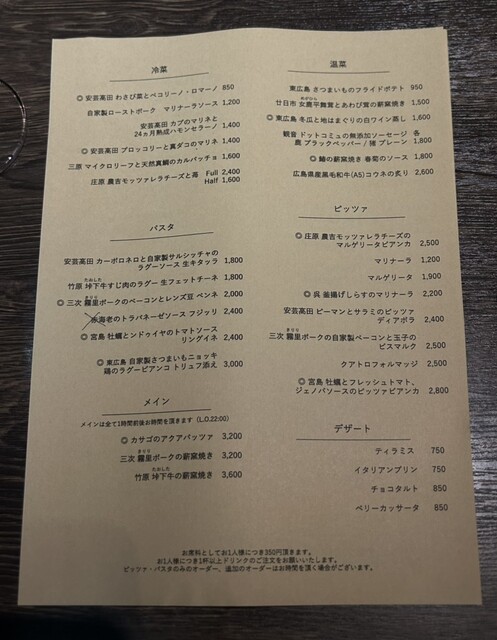 冷菜
◎ 安芸高田 わさび菜とペコリーノ・ロマーノ 850
自家製ローストポーク マリナーラソース 1,200
安芸高田 カブのマリネと
24ヵ月熟成ハモンセラーノ 1,400
◎ 安芸高田 ブロッコリーと真ダコのマリネ 1,400
三原 マイクロリーフと天然真鯛のカルパッチョ 1,600
庄原 農吉モッツァレラチーズと苺 Full 2,400
Half 1,600
パスタ
安芸高田 カーボロネロと自家製サルシッチャの
ラグーソース 生キタッラ 1,800
たおした
竹原 垰下牛すじ肉のラグー 生フェットチーネ 1,800
きりり
◎ 三次 霧里ポークのベーコンとレンズ豆 ペンネ 2,000
赤海老のトラパネーゼソース フジッリ 2,400
◎ 宮島 牡蠣とンドゥイヤのトマトソース
リングイネ 2,400
◎ 東広島 自家製さつまいもニョッキ
鶏のラグービアンコ トリュフ添え 3,000
メイン
メインは全て1時間前後お時間を頂きます（L.O.22:00）
◎ カサゴのアクアパッツァ 3,200
きりり
三次 霧里ポークの薪窯焼き 3,200
たおした
竹原 垰下牛の薪窯焼き 3,600
温菜
東広島 さつまいものフライドポテト 950
めがひら
廿日市 女鹿平舞茸とあわび茸の薪窯焼き 1,500
◎ 東広島 冬瓜と地はまぐりの白ワイン蒸し 1,600
観音 ドットコミュの無添加ソーセージ 各
鹿 ブラックペッパー / 猪 プレーン 1,800
◎ 鰆の薪窯焼き 春菊のソース 1,800
広島県産黒毛和牛(A5)コウネの炙り 2,600
ピッツァ
◎ 庄原 農吉モッツァレラチーズの
マルゲリータビアンカ 2,500
マリナーラ 1,200
マルゲリータ 1,900
◎ 呉 釜揚げしらすのマリナーラ 2,200
安芸高田 ピーマンとサラミのピッツァ
ディアボラ 2,400
きりり
三次 霧里ポークの自家製ベーコンと玉子の
ビスマルク 2,500
クアトロフォルマッジ 2,500
◎ 宮島 牡蠣とフレッシュトマト、
ジェノバソースのピッツァビアンカ 2,800
デザート
ティラミス 750
イタリアンプリン 750
チョコタルト 850
ベリーカッサータ 850
お席料としてお1人様につき350円頂きます。
お1人様につき1杯以上ドリンクのご注文をお願いいたします。
ピッツァ・パスタのみのオーダー、追加のオーダーはお時間を頂く場合がございます。